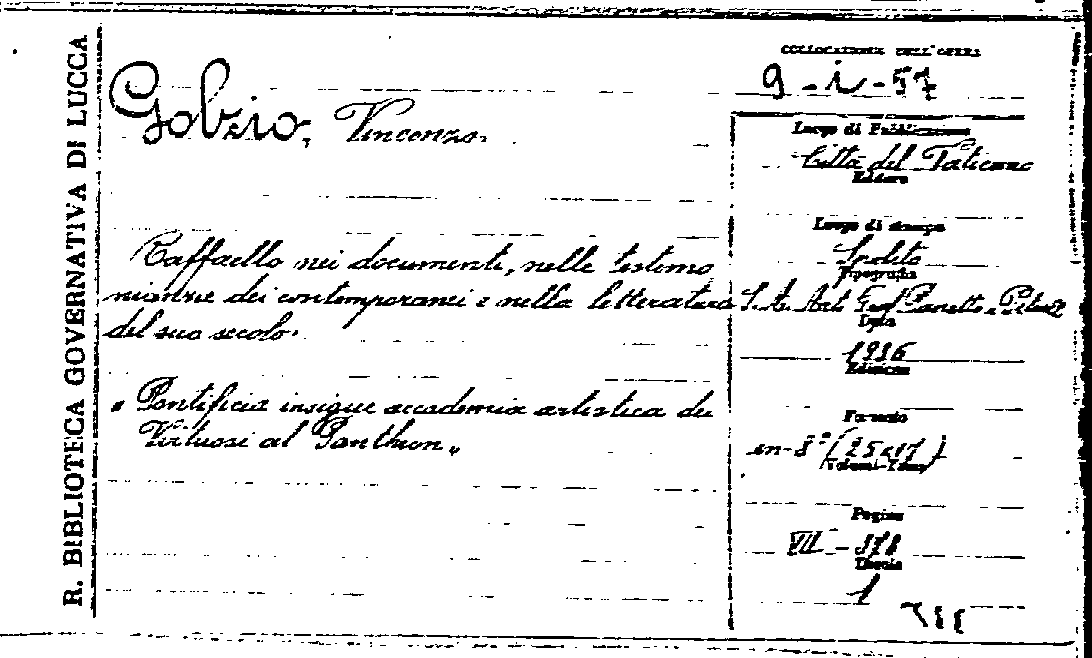 R. BIBLIOTECA GOVERNATIVA DI LUCCA
Golzio, Vincenzo.
Raffaello nei documenti, nelle testimo
nianze dei contemporanei e nella letteratura
del suo secolo.
" Pontificia insigne accademia artistica dei
Virtuosi al Pantheon "
COLLOCAZIONE DELL'OPERA
9 - i - 57
Luogo di Pubblicazione
Città del Vaticano
Editore
Luogo di stampa
Spoleto
Tipografia
S. A. Arti Graf Panetto e Petrelli
Data
1936
Edizione
Formato
in-8° (25x17)
Volumi-Tomo
Pagine
VII - 378
Tavole
1